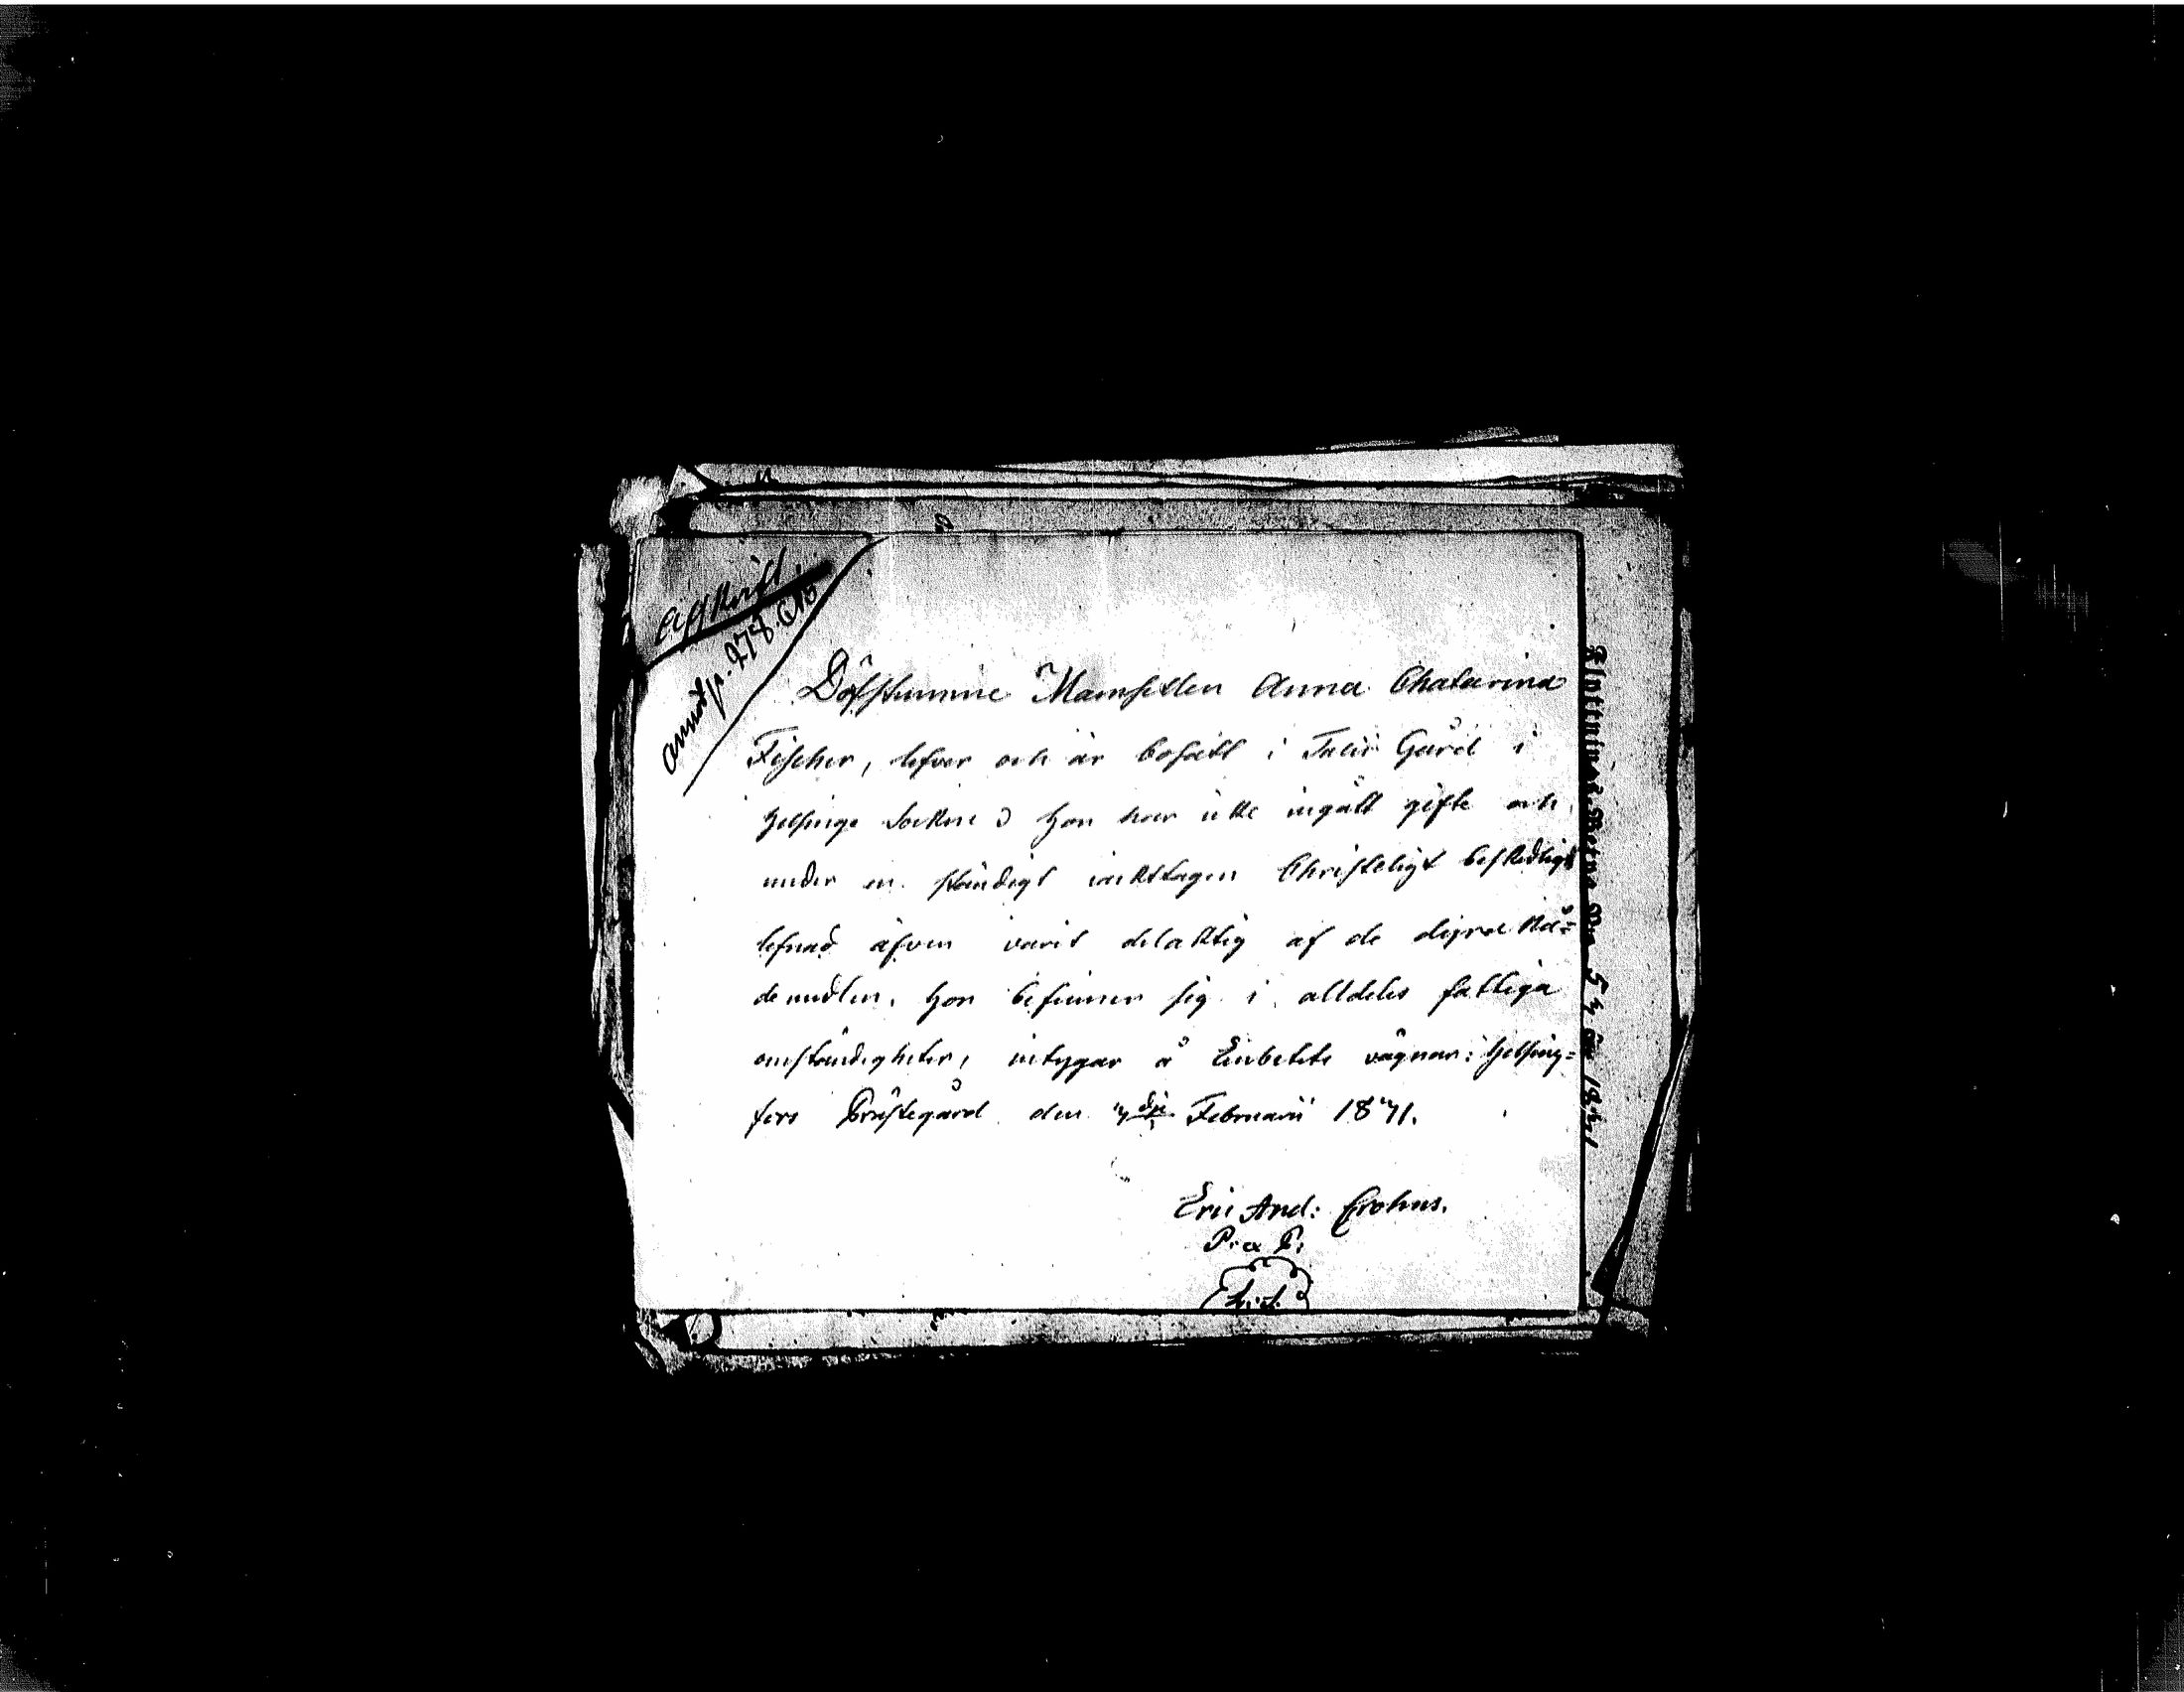 Lifskrift
annot. p. 278.
Döfstumme Mamsellen Anna Chatarina
Fischer, lefver och är bosatt i Gård i
Helsinge Sockn; Hon har icke ingått gifte och
under en ständigt iakttagen Christeligt beskedlig
lefnad äfven varit delaktig af de dyra Nå=
demedlen. Hon befinner sig i alldeles fattiga
omständigheter, intygar å Embetets vägnar: Helsing=
fors Prästegård den 4de Februarii 1841.
Eric And: Crohns.
P. a P.
L. S.